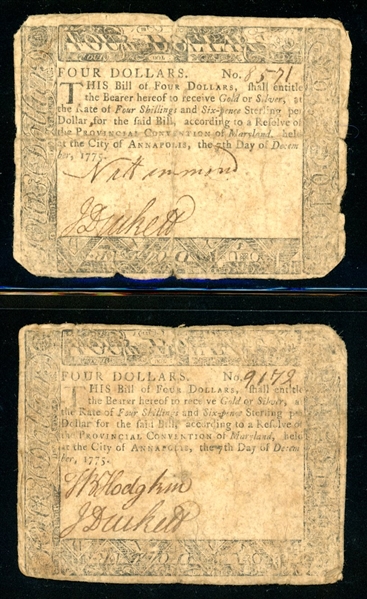 FOUR DOLLARS. No. 8571
THIS Bill of FOUR DOLLARS, shall entitle
the Bearer hereof to receive Gold or Silver, at
the Rate of Four Shillings and Six-pence Sterling per
Dollar for the said Bill, according to a Resolve of
the PROVINCIAL CONVENTION of Maryland, held
at the City of ANNAPOLIS, the 7th Day of Decem
ber, 1775.
Nt Hammond
J Duckett
FOUR DOLLARS. No. 9178
THIS Bill of FOUR DOLLARS, shall entitle
the Bearer hereof to receive Gold or Silver, at
the Rate of Four Shillings and Six-pence Sterling per
Dollar for the said Bill, according to a Resolve of
the PROVINCIAL CONVENTION of Maryland, held
at the City of ANNAPOLIS, the 7th Day of Decem
ber, 1775.
T B Hodgkin
J Duckett